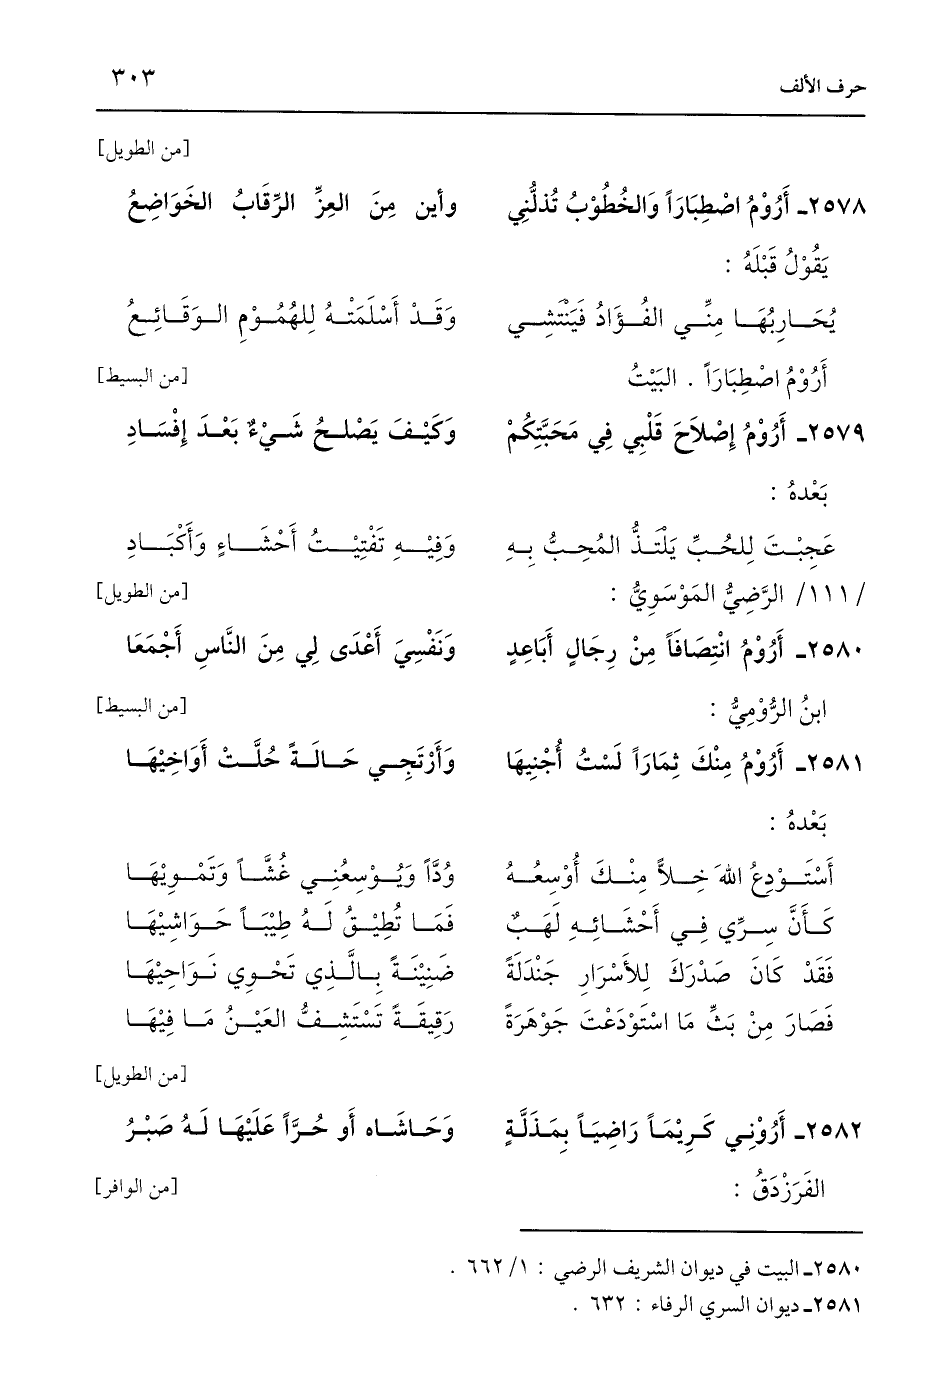 حرف الألف ٣٠٣
[من الطويل]
٢٥٧٨ـ أَرُوْمُ اصْطِبَارَاً وَالخُطُوْبُ تُذلُّنِي وأين مِنَ العِزِّ الرِّقَابُ الخَوَاضِعُ
يَقُوْلُ قَبْلَهُ :
يُحَـارِبُهَـا مِنِّـي الفُـؤَادُ فَيَنْتَشِـي وَقَـدْ أَسْلَمَتْـهُ لِلهُمُـوْمِ الـوَقَـائِـعُ
أَرُوْمُ اصْطِبَارَاً . البَيْتُ [من البسيط]
٢٥٧٩ـ أَرُوْمُ إِصْلَاحَ قَلْبِي فِي مَحَبَّتِكُمْ وَكَيْـفَ يَصْلـحُ شَـيْءٌ بَعْـدَ إِفْسَـادِ
بَعْدهُ :
عَجِبْـتَ لِلحُـبِّ يَلْتَـذُّ المُحِـبُّ بِـهِ وَفِيْـهِ تَفْتِيْـتُ أَحْشَـاءٍ وَأَكْبَـادِ
/١١١/ الرَّضِيُّ المَوْسَوِيُّ : [من الطويل]
٢٥٨٠ـ أَرُوْمُ انْتِصَافَاً مِنْ رِجَالٍ أَبَاعِدٍ وَنَفْسِيَ أَعْدَى لِي مِنَ النَّاسِ أَجْمَعَا
ابنُ الرُّوْمِيُّ : [من البسيط]
٢٥٨١ـ أَرُوْمُ مِنْكَ ثِمَارَاً لَسْتُ أُجْنِيهَا وَأَرْتَجِـي حَـالَـةً حُلَّـتْ أَوَاخِيْهَـا
بَعْدهُ :
أَسْتَـوْدِعُ اللهَ خِـلاًّ مِنْـكَ أُوْسِعُـهُ وُدَّاً وَيُـوْسِعُنِـي غُشَّـاً وَتَمْـوِيْهَـا
كَـأَنَّ سِـرِّي فِـي أَحْشَـائِـهِ لَهَـبٌ فَمَـا تُطِيْـقُ لَـهُ طِيْبَـاً حَـوَاشِيْهَـا
فَقَدْ كَانَ صَدْرَكَ لِلأَسْرَارِ جَنْدَلَةً ضَنِيْنَـةً بِـالَّـذِي تَحْوِي نَـوَاحِيْهَـا
فَصَارَ مِنْ بَثِّ مَا اسْتَوْدَعْتَ جَوْهَرَةً رَقِيقَـةً تَسْتَشِـفُّ العَيْـنُ مَـا فِيْهَـا
[من الطويل]
٢٥٨٢ـ أَرُوْنِـي كَـرِيْمَـاً رَاضِيَـاً بِمَـذَلَّـةٍ وَحَـاشَـاه أَو حُـرَّاً عَلَيْهَـا لَـهُ صَبْـرُ
الفَرَزْدَقُ : [من الوافر]
٢٥٨٠ـ البيت في ديوان الشريف الرضي : ١/ ٦٦٢ .
٢٥٨١ـ ديوان السري الرفاء : ٦٣٢ .